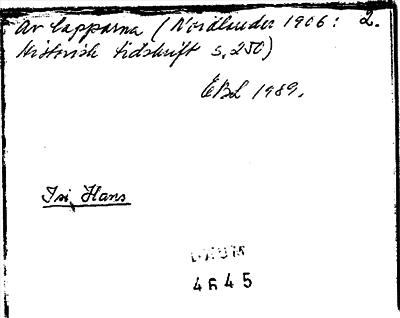 Av Lapparna (Nordlander 1906: 2.
Historisk tidskrift s. 250)
EBL 1989.
Isi, Hans
DAUM
4645